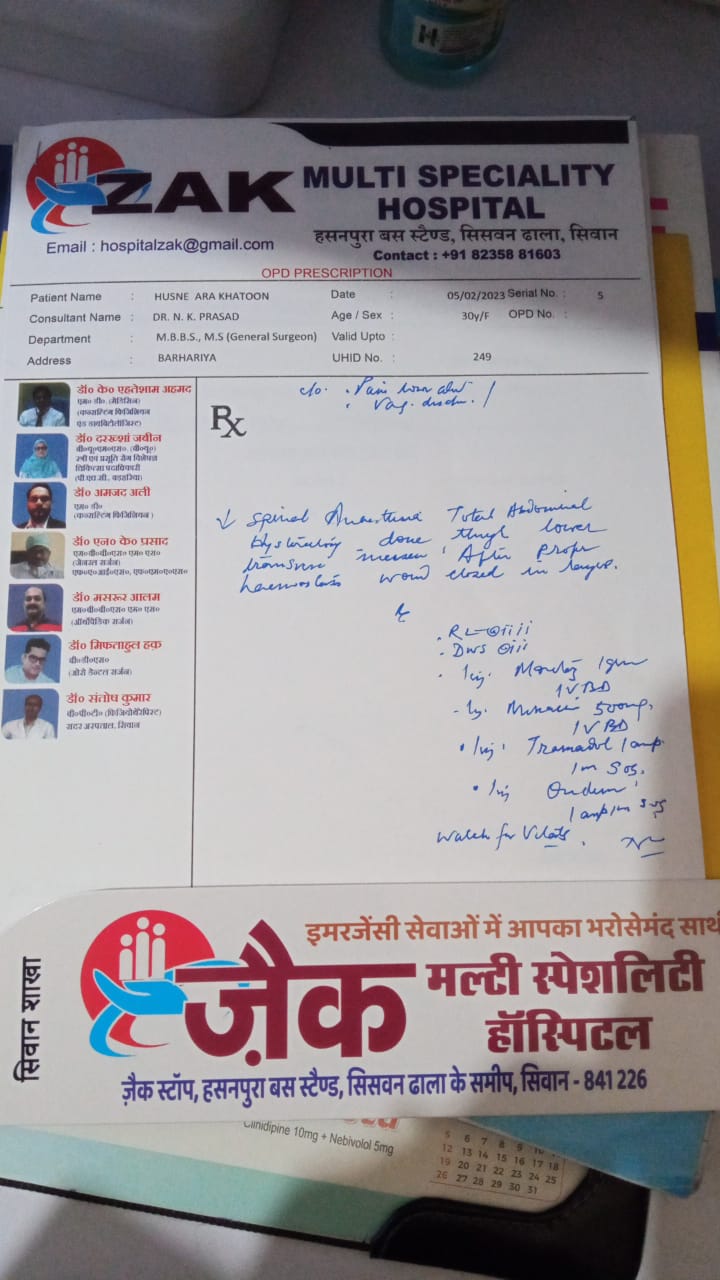 ZAK
MULTI SPECIALITY
HOSPITAL
हसनपुरा बस स्टैण्ड, सिसवन ढाला, सिवान
Email : hospitalzak@gmail.com
Contact : +91 82358 81603
OPD PRESCRIPTION
Patient Name : HUSNE ARA KHATOON Date : 05/02/2023 Serial No. : 5
Consultant Name : DR. N. K. PRASAD Age / Sex : 30y/F OPD No. :
Department : M.B.B.S., M.S (General Surgeon) Valid Upto :
Address : BARHARIYA UHID No. : 249
डॉ० के० एहतेशाम अहमद
एम० डी०, (मेडिसिन)
(कन्सल्टिंग फिजिशियन
एंड डायबिटोलॉजिस्ट)
डॉ० दरख्शां जबीन
स्त्री एवं प्रसूति रोग विशेषज्ञ
चिकित्सा पदाधिकारी
डॉ० अमजद अली
एम० डी०
(कन्सल्टिंग फिजिशियन)
डॉ० एन० के० प्रसाद
एम०बी०बी०एस० एम० एस०
(जेनरल सर्जन)
एफ०ए०आई०एस०, एफ०एम०ए०एस०
डॉ० मसरूर आलम
एम०बी०बी०एस० एम० एस०
(ऑर्थोपेडिक सर्जन)
डॉ० मिफताहुल हक़
बी०डी०एस०
(ओरो डेन्टल सर्जन)
डॉ० संतोष कुमार
बी०पी०टी० (फिजियोथेरेपिस्ट)
सदर अस्पताल, सिवान
c/o. . Pain lower abd
Rx
↓ Spinal Anaesthesia Total Abdominal
Hysterectomy done through lower
transverse incision. After proper
haemostasis wound closed in layers.
. RL
. DNS
1gm
IV BD
500mg
IV BD
. Inj. Tramadol 1 amp
Im SOS.
. Inj
1 amp Im SOS
Watch for Vitals.
सिवान शाखा
इमरजेंसी सेवाओं में आपका भरोसेमंद
ज़ैक
मल्टी स्पेशलिटी
हॉस्पिटल
ज़ैक स्टॉप, हसनपुरा बस स्टैण्ड, सिसवन ढाला के समीप, सिवान - 841 226
Clinidipine 10mg + Nebivolol 5mg
5 6 7 8 9 10 11
12 13 14 15 16 17 18
19 20 21 22 23 24 25
26 27 28 29 30 31